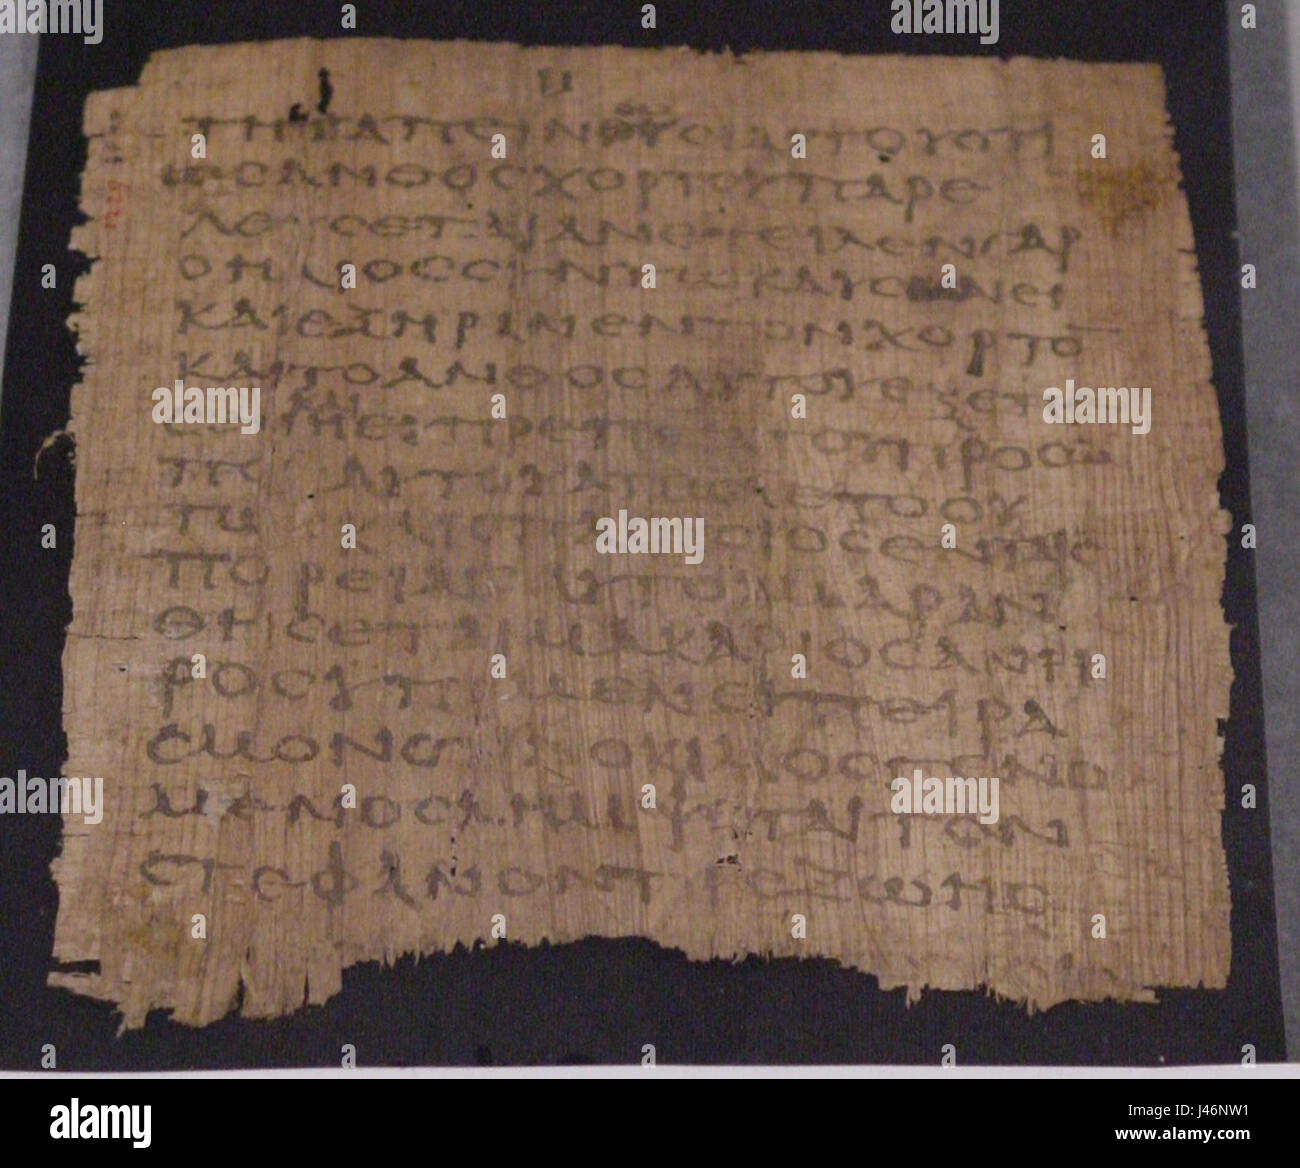 ΤΗ ΤΑΠΕΙΝΩCΙ ΑΥΤΟΥ ΟΤΙ
ΩC ΑΝΘΟC ΧΟΡΤΟΥ ΠΑΡΕ
ΛΕΥCΕΤΑΙ ΑΝΕΤΕΙΛΕΝ ΓΑΡ
Ο ΗΛΙΟC CΥΝ ΤΩ ΚΑΥCΩΝΕΙ
ΚΑΙ ΕΞΗΡΑΝΕΝ ΤΟΝ ΧΟΡΤΟ̅
ΚΑΙ ΤΟ ΑΝΘΟC ΑΥΤΟΥ ΕΞΕΠΕ
CΕΝ ΚΑΙ Η ΕΥΠΡΕΠΕΙΑ ΤΟΥ ΠΡΟCΩ
ΠΟΥ ΑΥΤΟΥ ΑΠΩΛΕΤΟ ΟΥ
ΤΩC ΚΑΙ Ο ΠΛΟΥCΙΟC ΕΝ ΤΑΙC
ΠΟΡΕΙΑΙC ΑΥΤΟΥ ΜΑΡΑΝ
ΘΗCΕΤΑΙ ΜΑΚΑΡΙΟC ΑΝΗΡ
ΟC ΥΠΟΜΕΝΕΙ ΠΕΙΡΑ
CΜΟΝ ΟΤΙ ΔΟΚΙΜΟC ΓΕΝΟ
ΜΕΝΟC ΛΗΜΨΕΤΑΙ ΤΟΝ
CΤΕΦΑΝΟΝ ΤΗC ΖΩΗC
alamy
Image ID: J46NW1
www.alamy.com